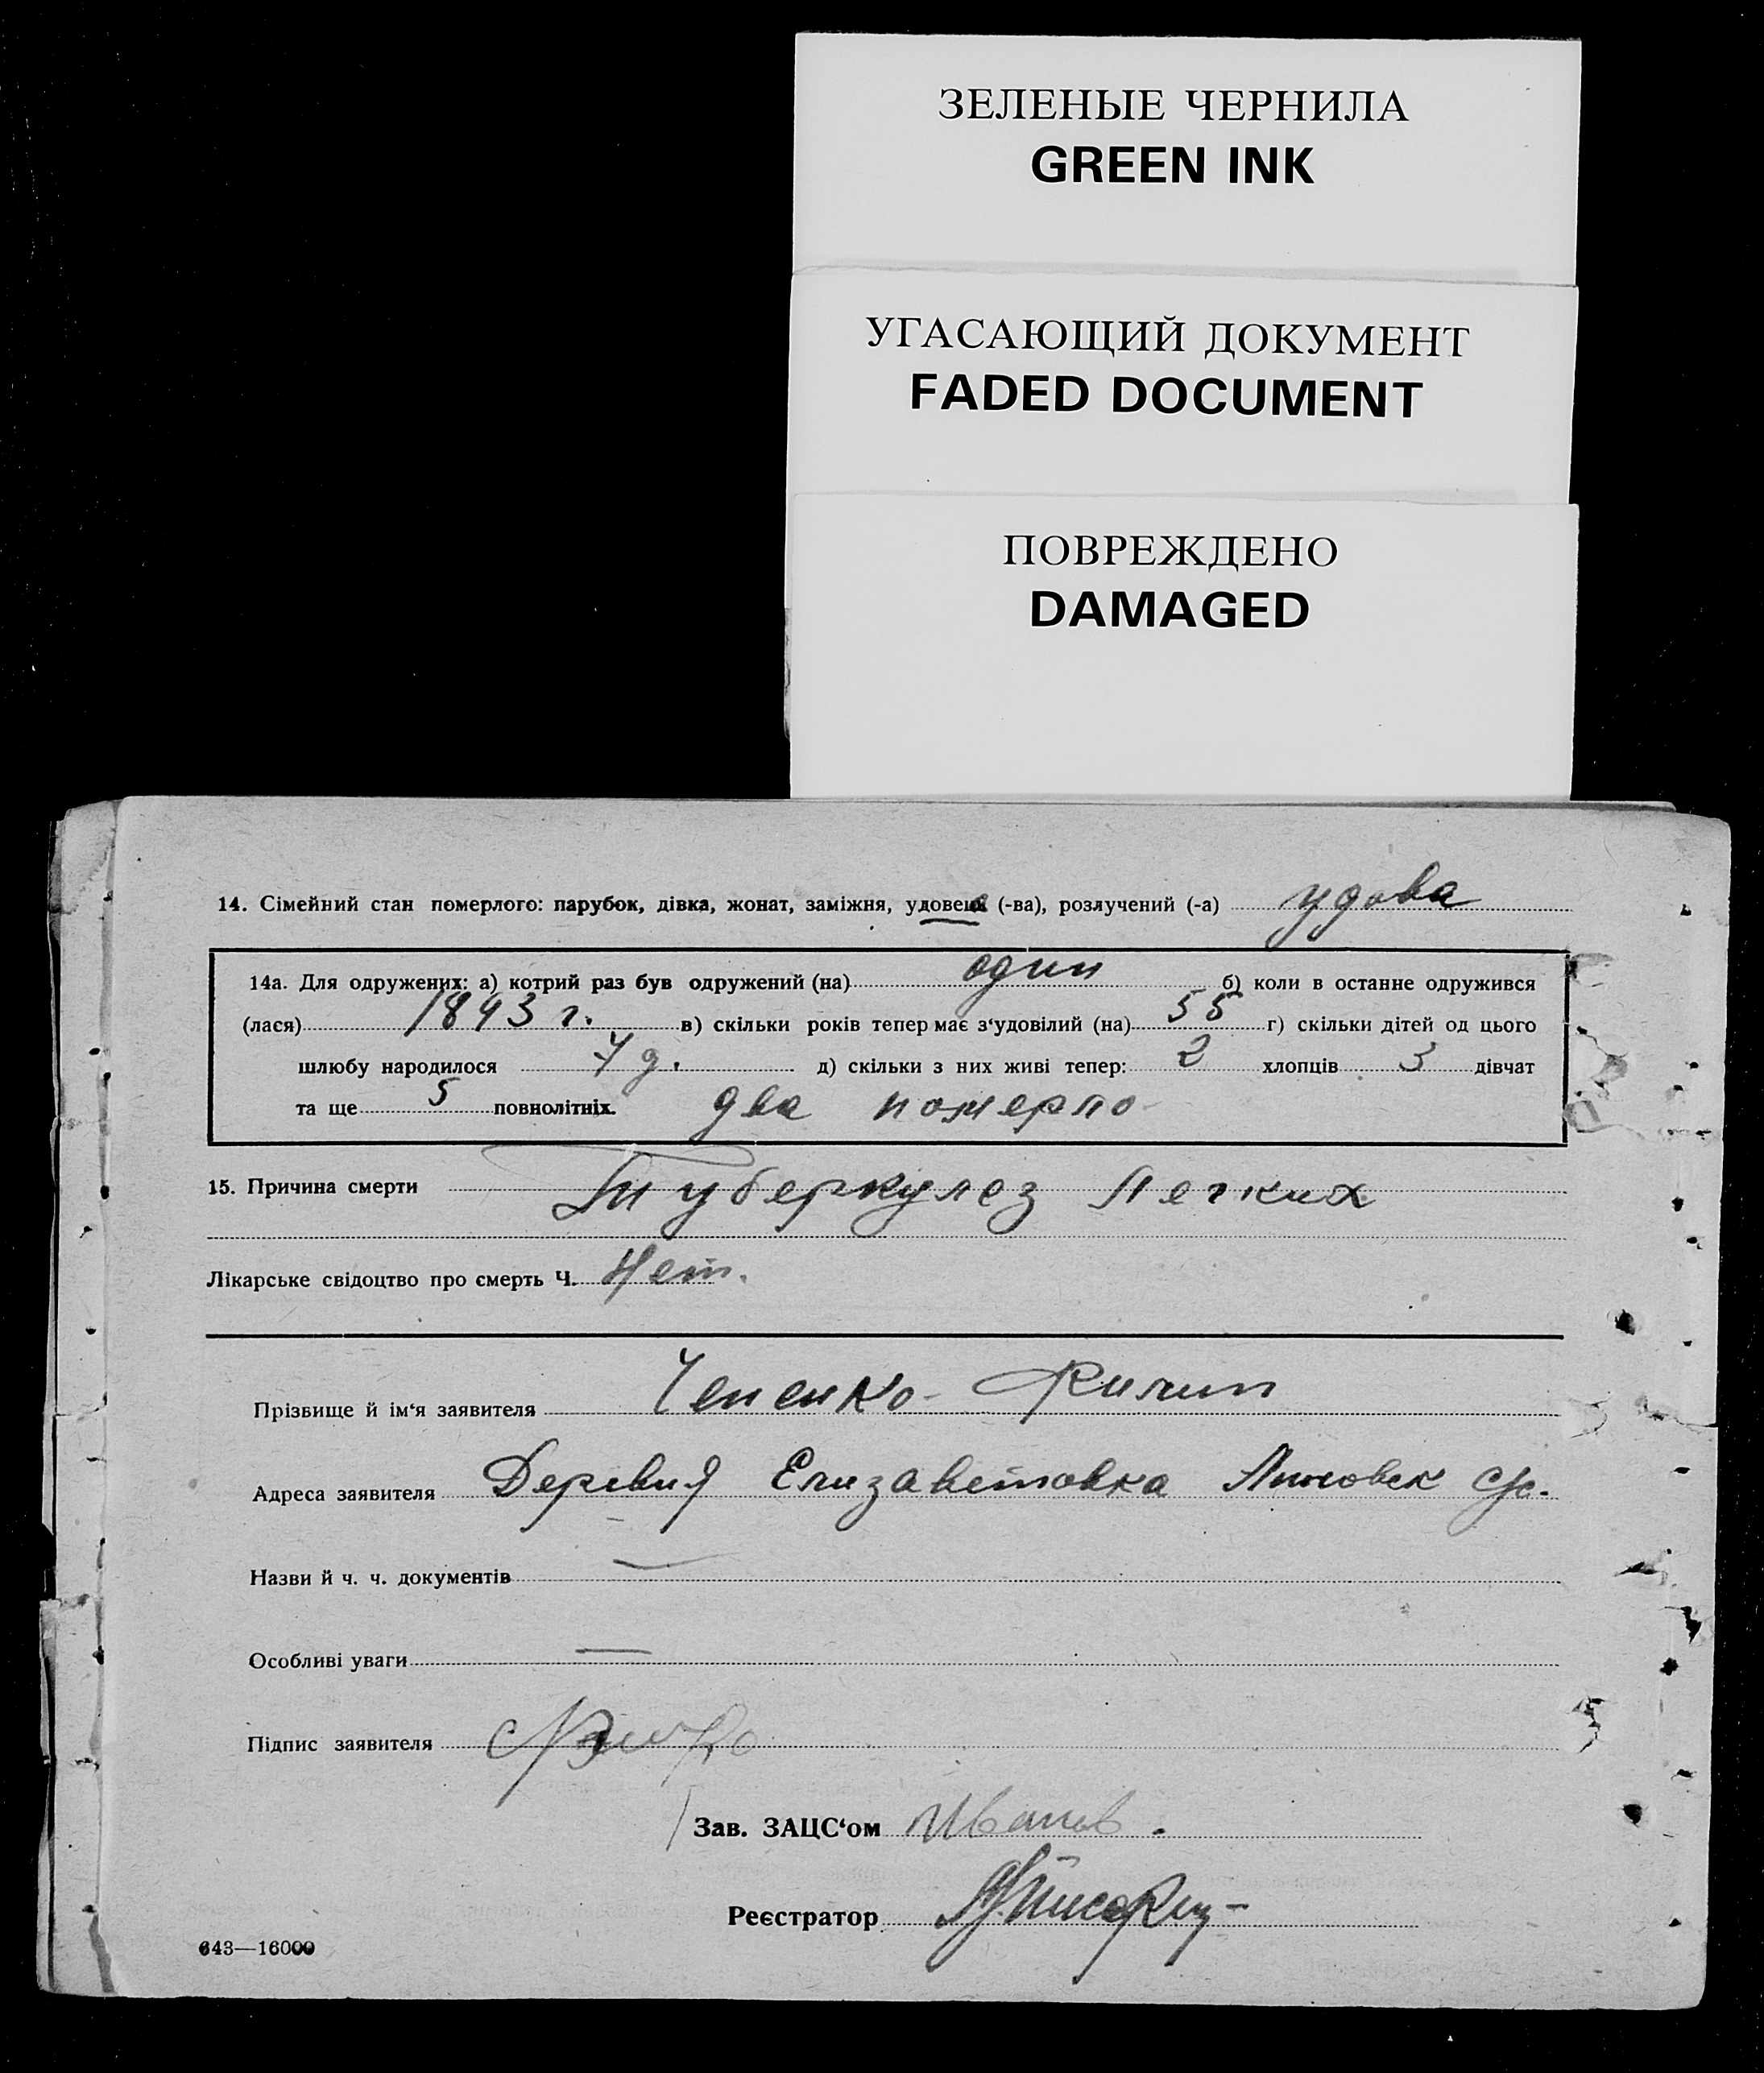 ЗЕЛЕНЫЕ ЧЕРНИЛА
GREEN INK
УГАСАЮЩИЙ ДОКУМЕНТ
FADED DOCUMENT
ПОВРЕЖДЕНО
DAMAGED
14. Сімейний стан померлого: парубок, дівка, жонат, заміжня, удовець (-ва), розлучений (-а) удова
14а. Для одружених: а) котрий раз був одружений (на) один б) коли в останне одружився
(лася) 1893 г. в) скільки років тепер має з‘удовілий (на) 55 г) скільки дітей од цього
шлюбу народилося 7 д. д) скільки з них живі тепер: 2 хлопців 3 дівчат
та ще 5 повнолітніх. два померло
15. Причина смерти Туберкулез Легких
Лікарське свідоцтво про смерть Ч. Нет.
Прізвище й ім‘я заявителя Чепенко Филип
Адреса заявителя Деревня Елизаветовка с/с.
Назви й ч. ч. документів —
Особливі уваги —
Підпис заявителя
Зав. ЗАЦС‘ом Иванов.
Реєстратор
643—16000